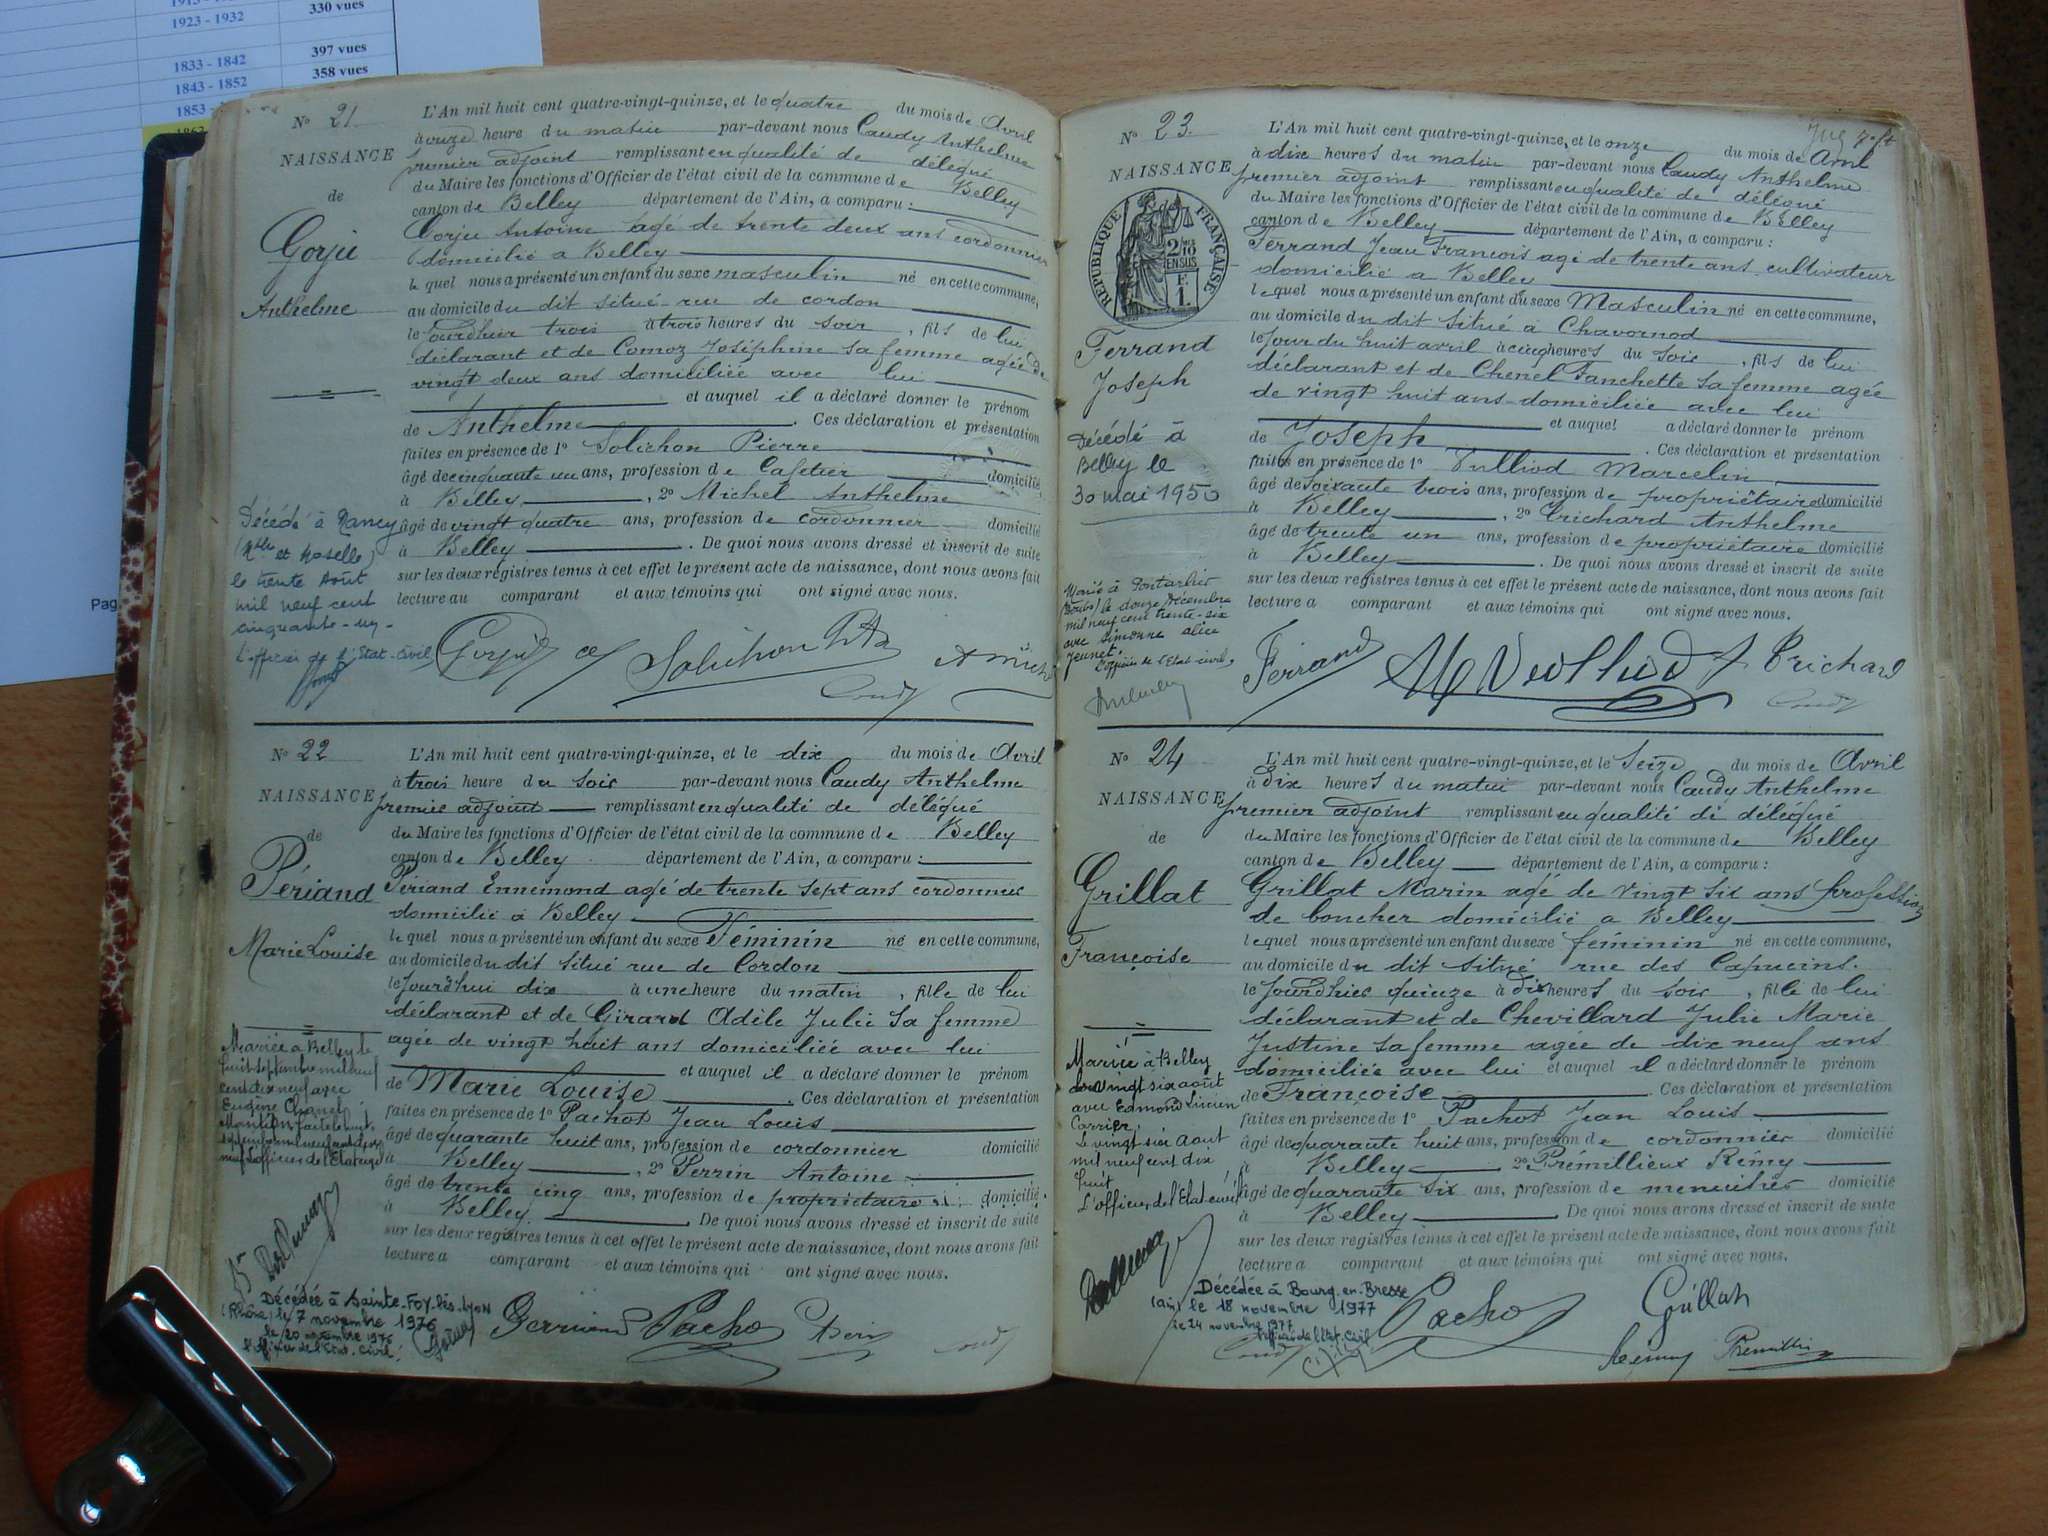 1923 - 1932
330 vues
1833 - 1842
397 vues
1843 - 1852
358 vues
1853 -
Pag
N° 21
NAISSANCE
de
Gorju
Anthelme
L'An mil huit cent quatre-vingt-quinze, et le quatre du mois de Avril
à onze heure du matin par-devant nous Caudy Anthelme
premier adjoint remplissant en qualité de délégué
du Maire les fonctions d'Officier de l'état civil de la commune de Belley
canton de Belley département de l'Ain, a comparu :
Gorju Antoine agé de trente deux ans cordonnier
domicilié a Belley
le quel nous a présenté un enfant du sexe masculin né en cette commune,
au domicile du dit situé rue de cordon
le jourdhier trois à trois heures du soir, fils de lui
déclarant et de Comoz Joséphine sa femme agée de
vingt deux ans domiciliée avec lui
et auquel il a déclaré donner le prénom
de Anthelme. Ces déclaration et présentation
faites en présence de 1° Solichon Pierre
âgé de cinquante un ans, profession de Cafetier domicilié
à Belley, 2° Michel Anthelme
âgé de vingt quatre ans, profession de cordonnier domicilié
à Belley. De quoi nous avons dressé et inscrit de suite
sur les deux registres tenus à cet effet le présent acte de naissance, dont nous avons fait
lecture au comparant et aux témoins qui ont signé avec nous.
Décédé à Nancy
(Mthe et Moselle)
le trente Août
mil neuf cent
cinquante-un-
L'officier de l'Etat-Civil
Gorju Solichon
N° 22
NAISSANCE
de
Périand
Marie Louise
L'An mil huit cent quatre-vingt-quinze, et le dix du mois de Avril
à trois heure du soir par-devant nous Caudy Anthelme
premier adjoint remplissant en qualité de délégué
du Maire les fonctions d'Officier de l'état civil de la commune de Belley
canton de Belley département de l'Ain, a comparu :
Périand Ennemond agé de trente sept ans cordonnier
domicilié à Belley
le quel nous a présenté un enfant du sexe Féminin né en cette commune,
au domicile du dit situé rue de Cordon
le jourdhui dix à une heure du matin, fille de lui
déclarant et de Girard Adèle Julie sa femme
agée de vingt huit ans domiciliée avec lui
et auquel il a déclaré donner le prénom
de Marie Louise. Ces déclaration et présentation
faites en présence de 1° Pachot Jean Louis
âgé de quarante huit ans, profession de cordonnier domicilié
à Belley, 2° Perrin Antoine
âgé de trente cinq ans, profession de propriétaire domicilié
à Belley. De quoi nous avons dressé et inscrit de suite
sur les deux registres tenus à cet effet le présent acte de naissance, dont nous avons fait
lecture a comparant et aux témoins qui ont signé avec nous.
Mariée à Belley le
huit septembre mil neuf
cent dix neuf avec
Eugène
Décédée à Sainte-Foy-lès-Lyon
(Rhône) le 7 novembre 1976
le 20 novembre 1976
l'officier de l'Etat-Civil.
Pacho
N° 23.
NAISSANCE
RÉPUBLIQUE FRANÇAISE
Ferrand
Joseph
L'An mil huit cent quatre-vingt-quinze, et le onze du mois de Avril
à dix heures du matin par-devant nous Caudy Anthelme
premier adjoint remplissant en qualité de délégué
du Maire les fonctions d'Officier de l'état civil de la commune de Belley
canton de Belley département de l'Ain, a comparu :
Ferrand Jean François agé de trente ans cultivateur
domicilié a Belley
le quel nous a présenté un enfant du sexe Masculin né en cette commune,
au domicile du dit situé à Chavornod
le jour du huit avril à cinq heures du soir, fils de lui
déclarant et de Chenel Fanchette sa femme agée
de vingt huit ans domiciliée avec lui
et auquel a déclaré donner le prénom
de Joseph. Ces déclaration et présentation
faites en présence de 1° Vulliod Marcelin
âgé de soixante trois ans, profession de propriétaire domicilié
à Belley, 2° Trichard Anthelme
âgé de trente un ans, profession de propriétaire domicilié
à Belley. De quoi nous avons dressé et inscrit de suite
sur les deux registres tenus à cet effet le présent acte de naissance, dont nous avons fait
lecture a comparant et aux témoins qui ont signé avec nous.
Décédé à
Belley le
30 mai 1950
Marié à Pontarlier
(Doubs) le douze Décembre
mil neuf cent trente-six
avec Simonne Alice
Jeunet.
L'officier de l'Etat-civil,
Ferrand Trichard
N° 24
NAISSANCE
de
Grillat
Françoise
L'An mil huit cent quatre-vingt-quinze, et le Seize du mois de Avril
à dix heures du matin par-devant nous Caudy Anthelme
premier adjoint remplissant en qualité de délégué
du Maire les fonctions d'Officier de l'état civil de la commune de Belley
canton de Belley département de l'Ain, a comparu :
Grillat Marin agé de vingt six ans profession
de boucher domicilié a Belley
le quel nous a présenté un enfant du sexe féminin né en cette commune,
au domicile du dit situé rue des Capucins.
le jourdhier quinze à dix heures du soir, fille de lui
déclarant et de Chevillard Julie Marie
Justine sa femme agée de dix neuf ans
domiciliée avec lui et auquel il a déclaré donner le prénom
de Françoise. Ces déclaration et présentation
faites en présence de 1° Pachot Jean Louis
âgé de quarante huit ans, profession de cordonnier domicilié
à Belley 2° Prémillieux Rémy
âgé de quarante six ans, profession de menuisier domicilié
à Belley. De quoi nous avons dressé et inscrit de suite
sur les deux registres tenus à cet effet le présent acte de naissance, dont nous avons fait
lecture a comparant et aux témoins qui ont signé avec nous.
Mariée à Belley
le vingt six août
avec Edmond Lucien
Carrier,
Le vingt six Aout
mil neuf cent dix
huit
L'officier de l'Etat civil
Décédée à Bourg-en-Bresse
(Ain) le 18 novembre 1977
le 24 novembre 1977
l'officier de l'Etat-Civil
Pacho Grillat